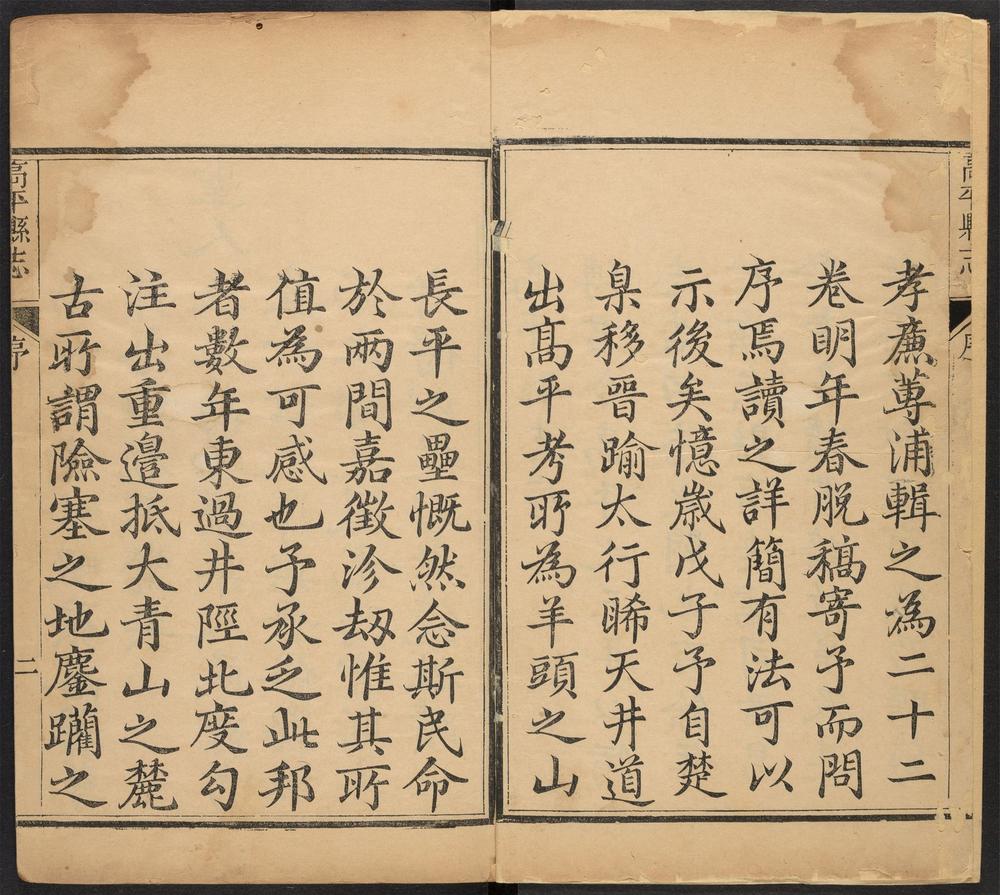 高平縣志
孝廉蓴浦輯之為二十二
卷明年春脫稿寄予而問
序焉讀之詳簡有法可以
示後矣憶歲戊子予自楚
臬移晉踰太行睎天井道
出髙平考所為羊頭之山
長平之壘慨然念斯民命
於兩間嘉徵沴刼惟其所
值為可感也予承乏此邦
者數年東過井陘北度勾
注出重邉抵大青山之麓
古所謂險塞之地鏖躪之
高平縣志
序
二